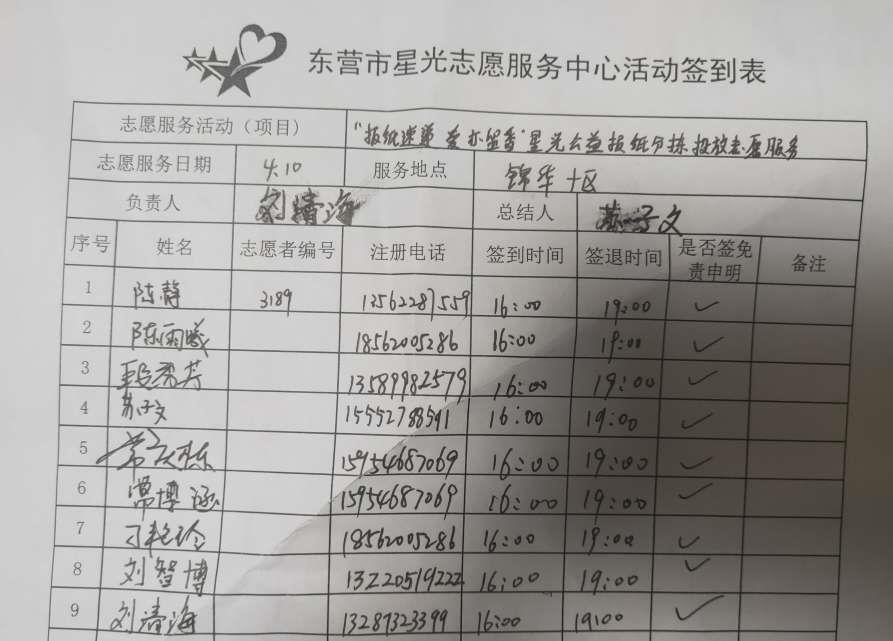 东营市星光志愿服务中心活动签到表
志愿服务活动（项目） "报纸速递 爱亦留香"星光公益报纸分拣投放志愿服务
志愿服务日期 4.10 服务地点 锦华十区
负责人 刘清海 总结人 苏子文
序号 姓名 志愿者编号 注册电话 签到时间 签退时间 是否签免责申明 备注
1 陈静 3189 13562287559 16:00 19:00 ✓
2 陈雨曦 18562005286 16:00 19:00 ✓
3 段秀芬 13589982579 16:00 19:00 ✓
4 苏子文 15552788591 16:00 19:00 ✓
5 常 15954687069 16:00 19:00 ✓
6 常博涵 15954687069 16:00 19:00 ✓
7 丁艳玲 18562005286 16:00 19:00 ✓
8 刘智博 13220519222 16:00 19:00 ✓
9 刘清海 13287323399 16:00 19:00 ✓